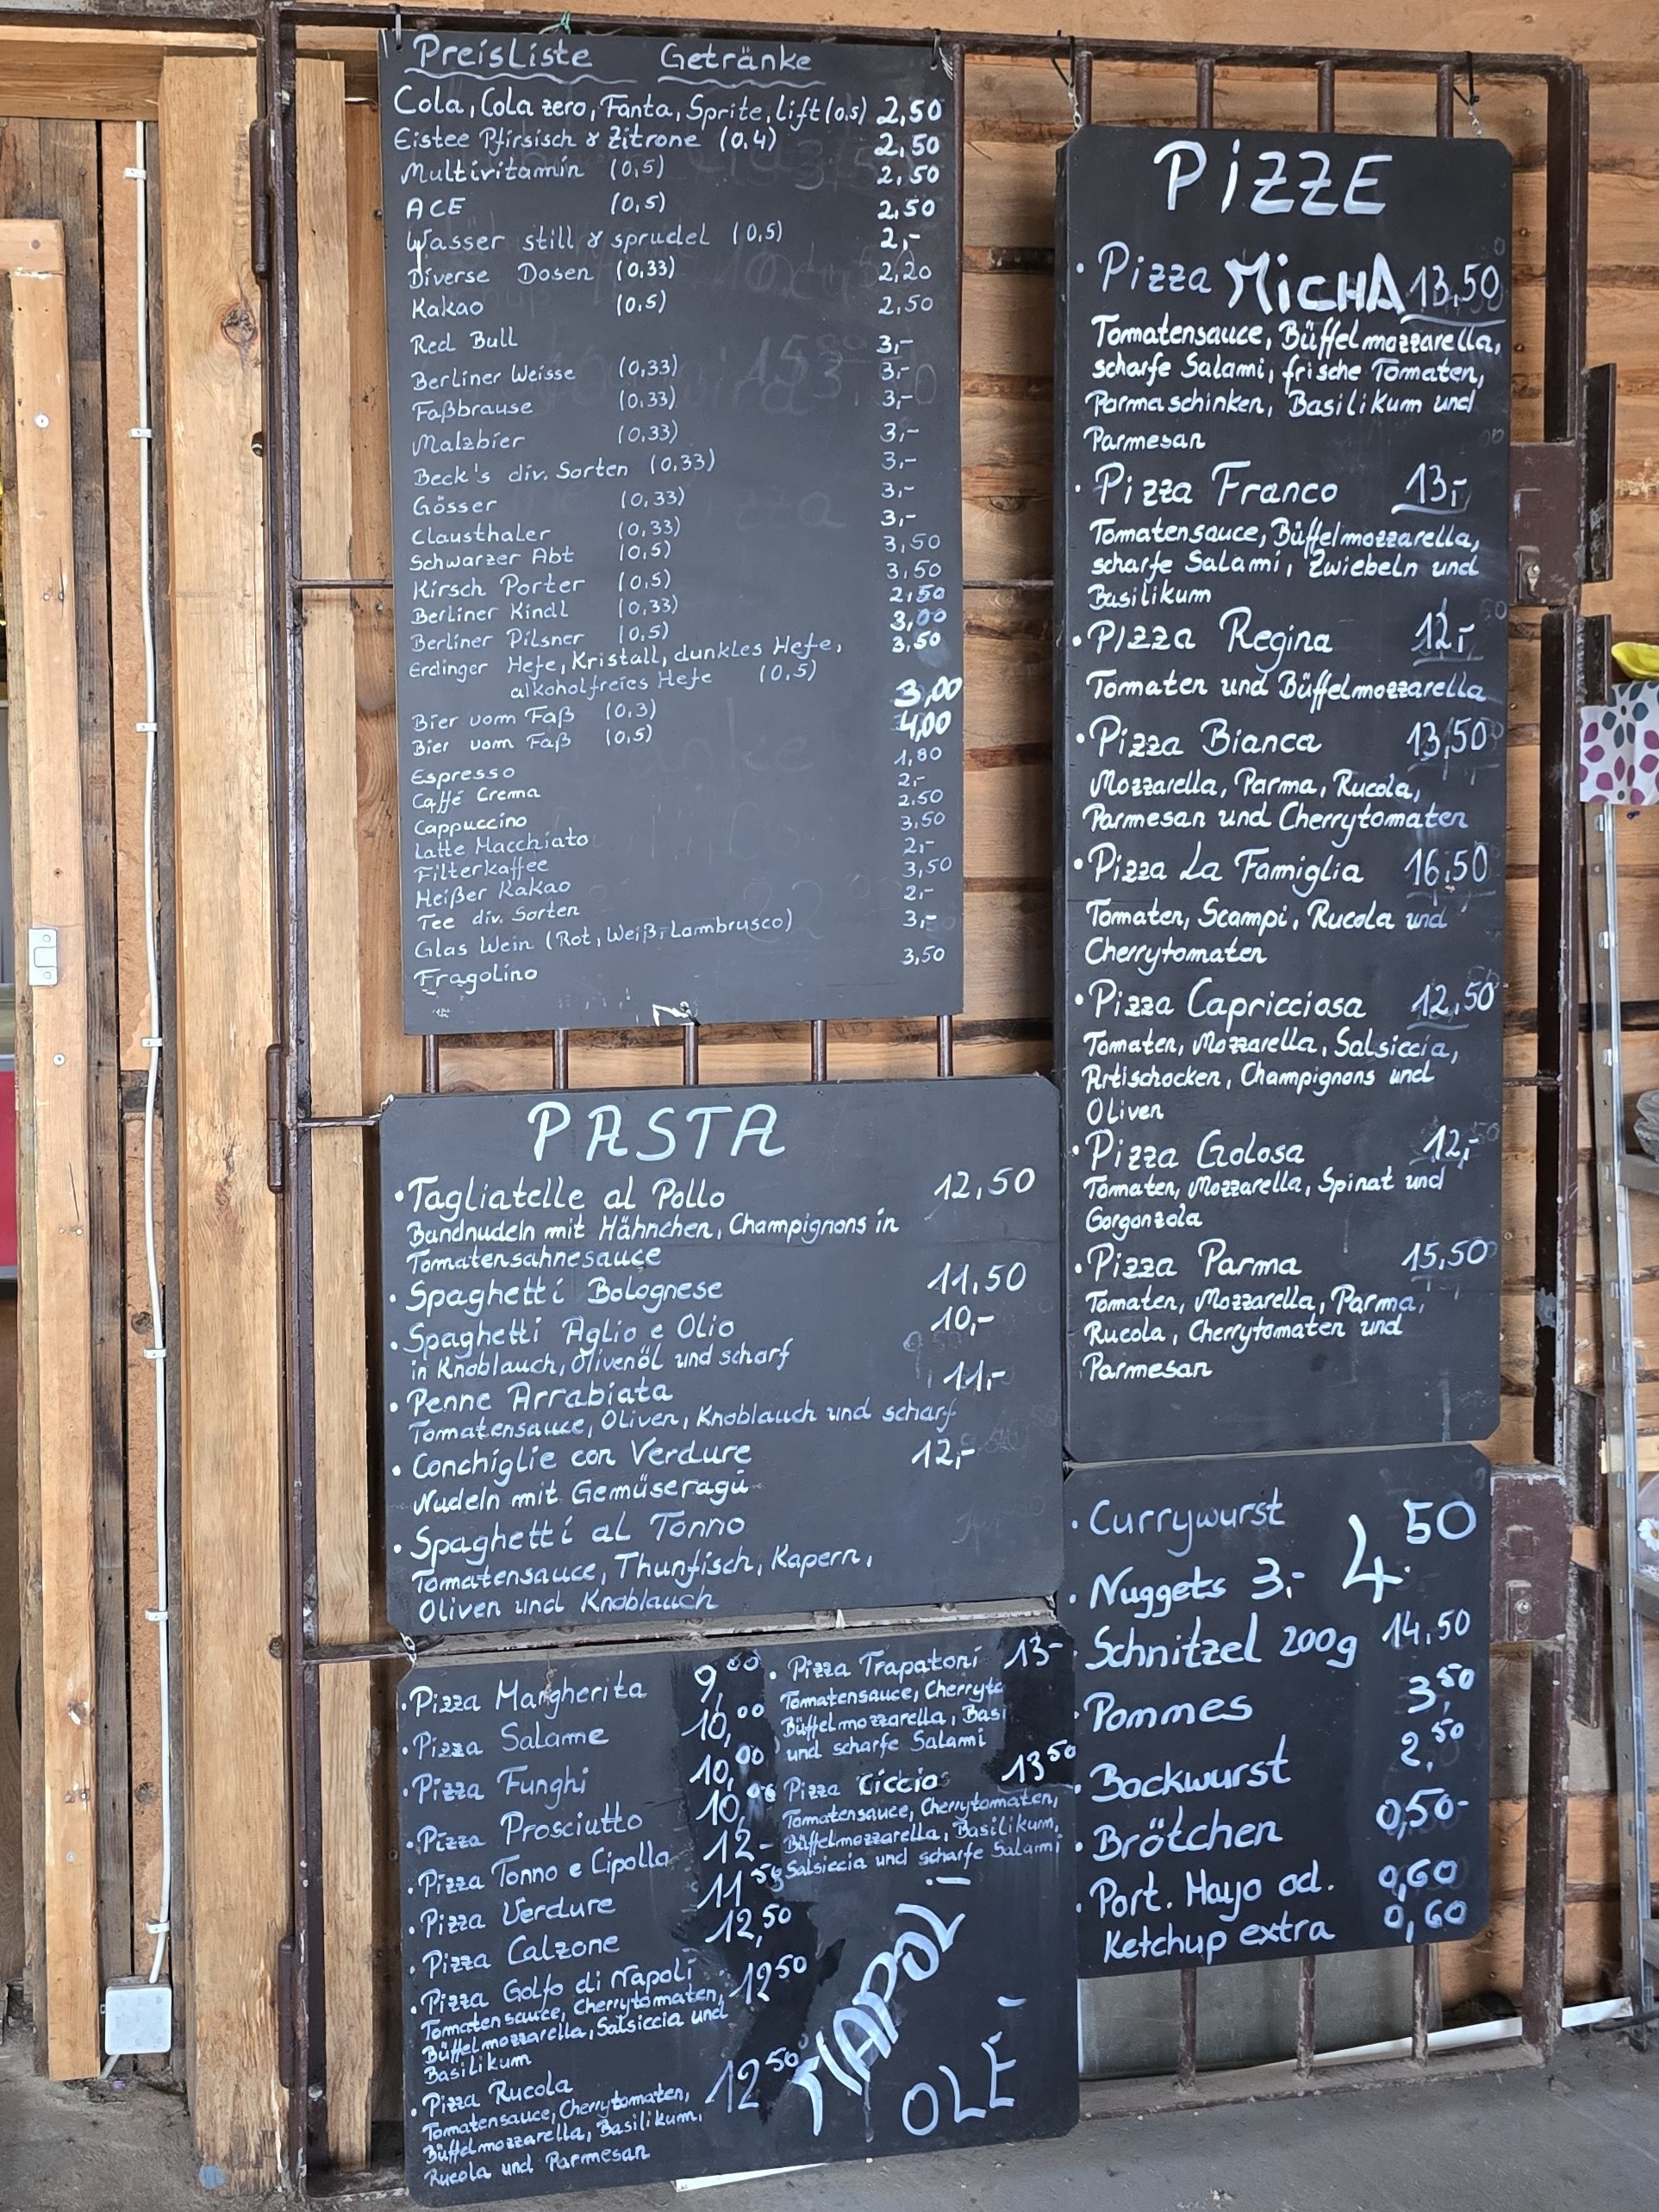 Preisliste Getränke
Cola, Cola zero, Fanta, Sprite, lift (0,5) 2,50
Eistee Pfirsisch & Zitrone (0,4) 2,50
Multivitamin (0,5) 2,50
ACE (0,5) 2,50
Wasser still & sprudel (0,5) 2,-
Diverse Dosen (0,33) 2,20
Kakao (0,5) 2,50
Red Bull 3,-
Berliner Weisse (0,33) 3,-
Faßbrause (0,33) 3,-
Malzbier (0,33) 3,-
Beck's div. Sorten (0,33) 3,-
Gösser (0,33) 3,-
Clausthaler (0,33) 3,-
Schwarzer Abt (0,5) 3,50
Kirsch Porter (0,5) 3,50
Berliner Kindl (0,33) 2,50
Berliner Pilsner (0,5) 3,00
Erdinger Hefe, Kristall, dunkles Hefe, 3,50
alkoholfreies Hefe (0,5)
Bier vom Faß (0,3) 3,00
Bier vom Faß (0,5) 4,00
Espresso 1,80
Caffé Crema 2,-
Cappuccino 2,50
Latte Macchiato 3,50
Filterkaffee 2,-
Heißer Kakao 3,50
Tee div. Sorten 2,-
Glas Wein (Rot, Weiß, Lambrusco) 3,-
Fragolino 3,50
PASTA
• Tagliatelle al Pollo 12,50
Bandnudeln mit Hähnchen, Champignons in
Tomatensahnesauce
• Spaghetti Bolognese 11,50
• Spaghetti Aglio e Olio 10,-
in Knoblauch, Olivenöl und scharf
• Penne Arrabiata 11,-
Tomatensauce, Oliven, Knoblauch und scharf
• Conchiglie con Verdure 12,-
Nudeln mit Gemüseragū
• Spaghetti al Tonno
Tomatensauce, Thunfisch, Kapern,
Oliven und Knoblauch
• Pizza Margherita 9,00
• Pizza Salame 10,00
• Pizza Funghi 10,00
• Pizza Prosciutto 10,00
• Pizza Tonno e Cipolla 12-
• Pizza Verdure 11,50
• Pizza Calzone 12,50
• Pizza Golfo di Napoli 12 50
Tomatensauce, Cherrytomaten,
Büffelmozzarella, Salsiccia und
Basilikum
• Pizza Rucola 12 50
Tomatensauce, Cherrytomaten,
Büffelmozzarella, Basilikum,
Rucola und Parmesan
• Pizza Trapatoni 13-
Tomatensauce, Cherryto
Büffelmozzarella, Basi
und scharfe Salami
• Pizza Ciccio 13 50
Tomatensauce, Cherrytomaten,
Büffelmozzarella, Basilikum,
Salsiccia und scharfe Salami
OLÉ
PiZZE
• Pizza MicHA 13,50
Tomatensauce, Büffelmozzarella,
scharfe Salami, frische Tomaten,
Parmaschinken, Basilikum und
Parmesan
• Pizza Franco 13,-
Tomatensauce, Büffelmozzarella,
scharfe Salami, Zwiebeln und
Basilikum
• Pizza Regina 12,-
Tomaten und Büffelmozzarella
• Pizza Bianca 13,50
Mozzarella, Parma, Rucola,
Parmesan und Cherrytomaten
• Pizza La Famiglia 16,50
Tomaten, Scampi, Rucola und
Cherrytomaten
• Pizza Capricciosa 12,50
Tomaten, Mozzarella, Salsiccia,
Artischocken, Champignons und
Oliven
• Pizza Golosa 12,-
Tomaten, Mozzarella, Spinat und
Gorgonzola
• Pizza Parma 15,50
Tomaten, Mozzarella, Parma,
Rucola, Cherrytomaten und
Parmesan
• Currywurst 4,50
• Nuggets 3,-
• Schnitzel 200g 14,50
• Pommes 3,50
• Bockwurst 2,50
• Brötchen 0,50-
• Port. Mayo od. 0,60
Ketchup extra 0,60